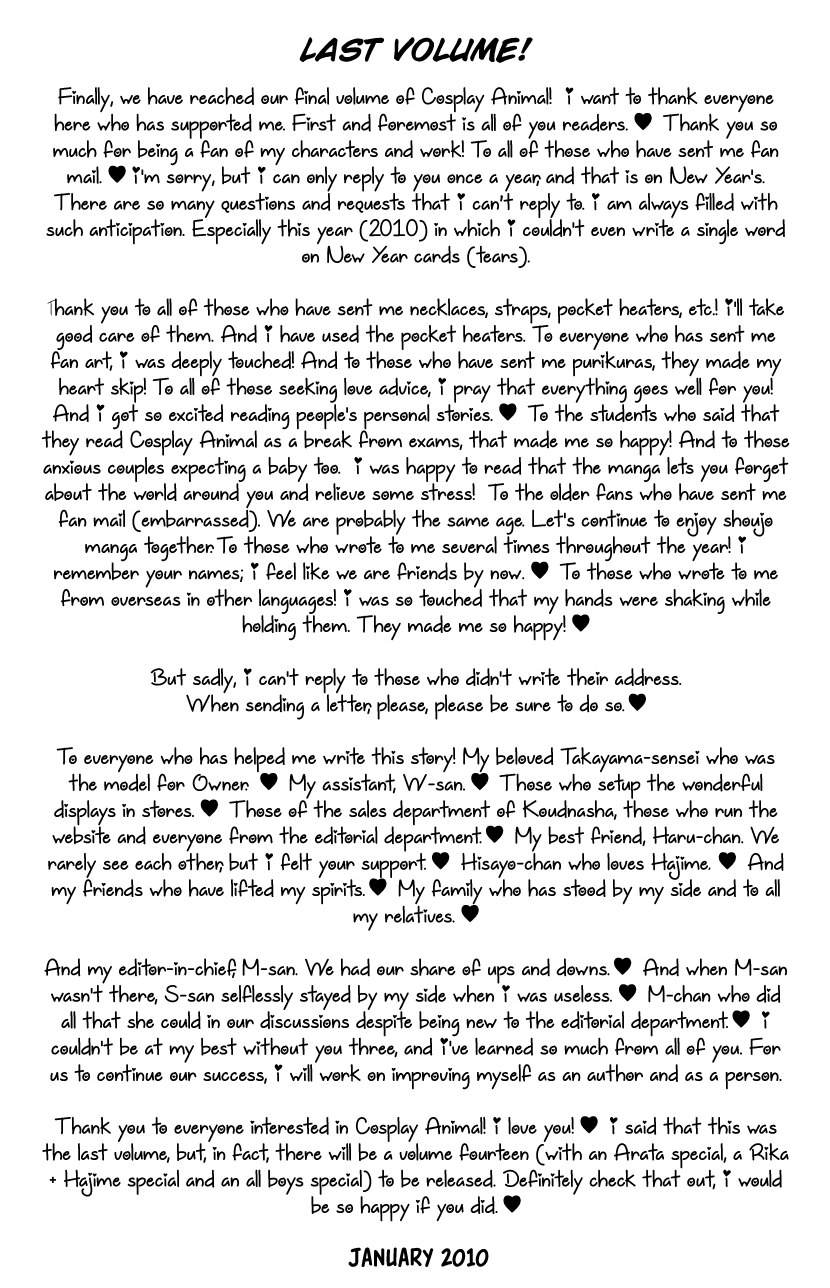 LAST VOLUME!
Finally, we have reached our final volume of Cosplay Animal! i want to thank everyone
here who has supported me. First and foremost is all of you readers. ♥ Thank you so
much for being a fan of my characters and work! To all of those who have sent me fan
mail. ♥ i'm sorry, but i can only reply to you once a year, and that is on New Year's.
There are so many questions and requests that i can't reply to. i am always filled with
such anticipation. Especially this year (2010) in which i couldn't even write a single word
on New Year cards (tears).
Thank you to all of those who have sent me necklaces, straps, pocket heaters, etc.! i'll take
good care of them. And i have used the pocket heaters. To everyone who has sent me
fan art, i was deeply touched! And to those who have sent me purikuras, they made my
heart skip! To all of those seeking love advice, i pray that everything goes well for you!
And i got so excited reading people's personal stories. ♥ To the students who said that
they read Cosplay Animal as a break from exams, that made me so happy! And to those
anxious couples expecting a baby too. i was happy to read that the manga lets you forget
about the world around you and relieve some stress! To the older fans who have sent me
fan mail (embarrassed). We are probably the same age. Let's continue to enjoy shoujo
manga together. To those who wrote to me several times throughout the year! i
remember your names; i feel like we are friends by now. ♥ To those who wrote to me
from overseas in other languages! i was so touched that my hands were shaking while
holding them. They made me so happy! ♥
But sadly, i can't reply to those who didn't write their address.
When sending a letter, please, please be sure to do so. ♥
To everyone who has helped me write this story! My beloved Takayama-sensei who was
the model for Owner. ♥ My assistant, W-san. ♥ Those who setup the wonderful
displays in stores. ♥ Those of the sales department of Koudnasha, those who run the
website and everyone from the editorial department. ♥ My best friend, Haru-chan. We
rarely see each other, but i felt your support. ♥ Hisayo-chan who loves Hajime. ♥ And
my friends who have lifted my spirits. ♥ My family who has stood by my side and to all
my relatives. ♥
And my editor-in-chief, M-san. We had our share of ups and downs. ♥ And when M-san
wasn't there, S-san selflessly stayed by my side when i was useless. ♥ M-chan who did
all that she could in our discussions despite being new to the editorial department. ♥ i
couldn't be at my best without you three, and i've learned so much from all of you. For
us to continue our success, i will work on improving myself as an author and as a person.
Thank you to everyone interested in Cosplay Animal! i love you! ♥ i said that this was
the last volume, but, in fact, there will be a volume fourteen (with an Arata special, a Rika
+ Hajime special and an all boys special) to be released. Definitely check that out, i would
be so happy if you did. ♥
JANUARY 2010